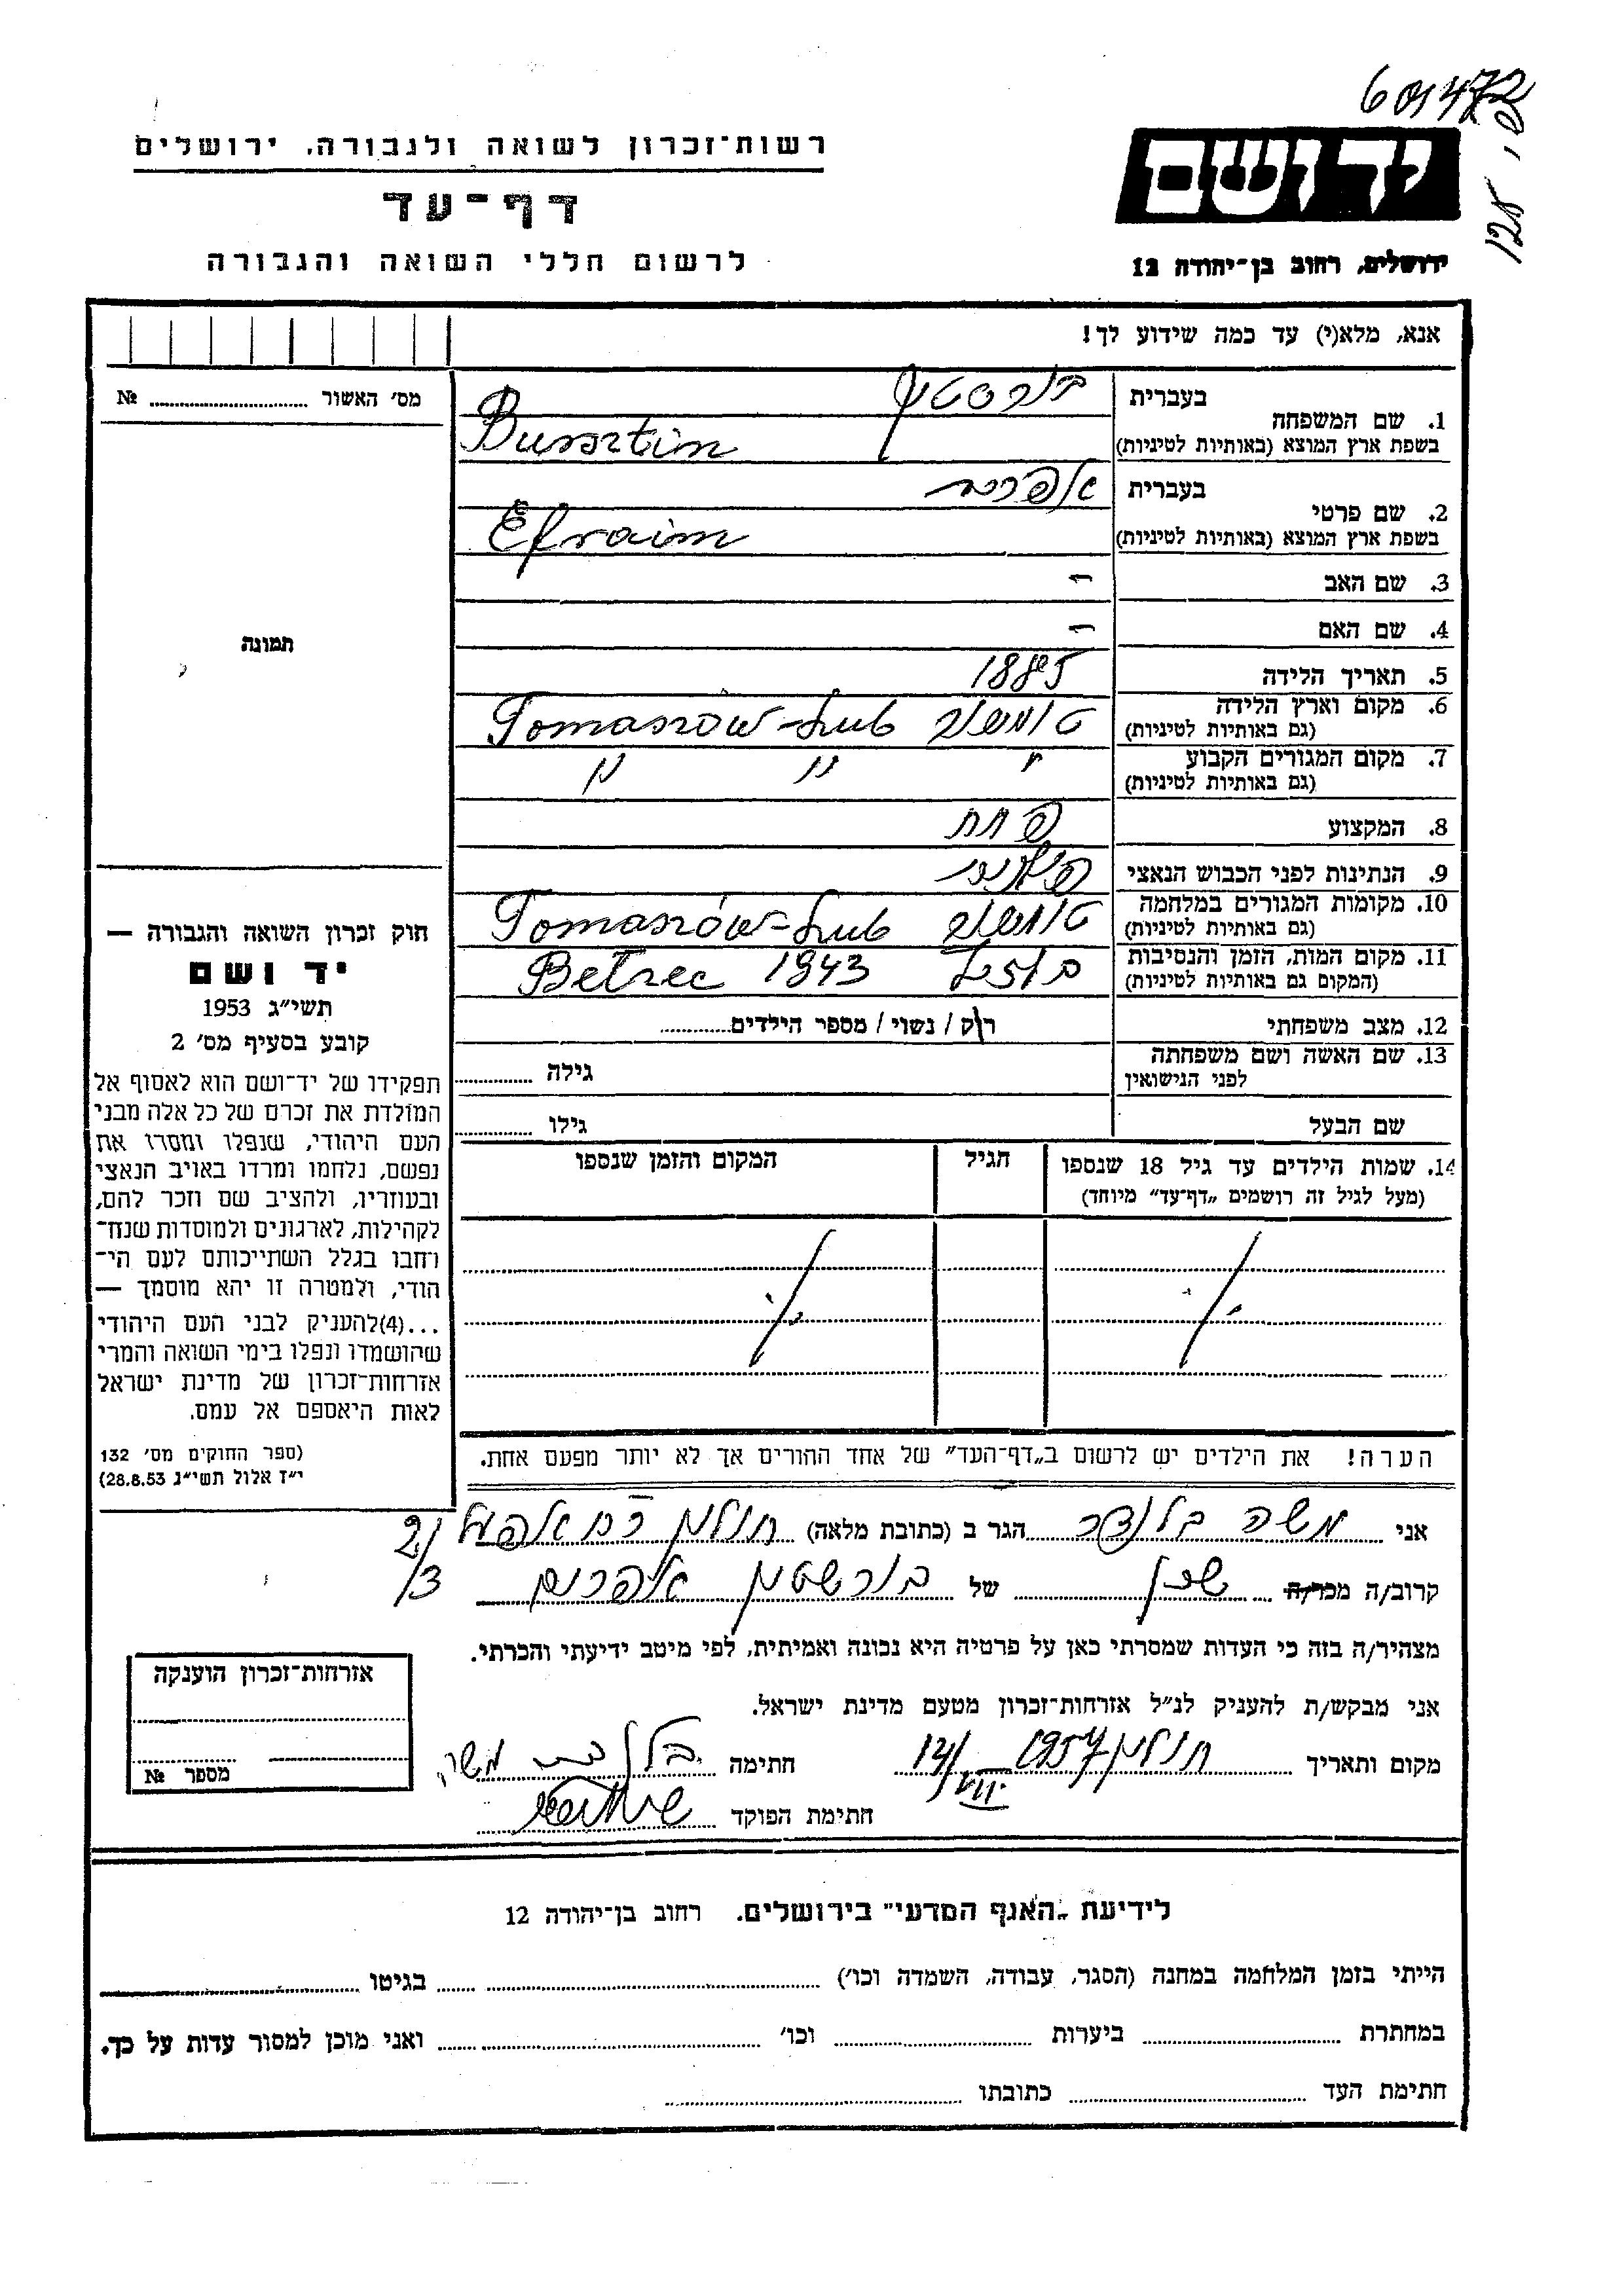 601472
רשות־זכרון לשואה ולגבורה, ירושלים
דף־עד
לרשום חללי השואה והגבורה
יד ושם
ירושלים, רחוב בן־יהודה 12
אנא, מלא(י) עד כמה שידוע לך!
מס׳ האשור ........ №
תמונה
1. שם המשפחה
בעברית
בשפת ארץ המוצא (באותיות לטיניות)
Bursztin
2. שם פרטי
בעברית אפרים
בשפת ארץ המוצא (באותיות לטיניות) Efraim
3. שם האב –
4. שם האם –
5. תאריך הלידה 1885
6. מקום וארץ הלידה
(גם באותיות לטיניות) Tomaszów-Lub
7. מקום המגורים הקבוע
(גם באותיות לטיניות) " " "
8. המקצוע
9. הנתינות לפני הכבוש הנאצי
10. מקומות המגורים במלחמה
(גם באותיות לטיניות) Tomaszów-Lub
11. מקום המות, הזמן והנסיבות
(המקום גם באותיות לטיניות) Bełzec 1943
12. מצב משפחתי רוק / נשוי / מספר הילדים........
13. שם האשה ושם משפחתה
לפני הנישואין גילה ........
שם הבעל גילו ........
14. שמות הילדים עד גיל 18 שנספו
(מעל לגיל זה רושמים „דף־עד״ מיוחד)
הגיל
המקום והזמן שנספו
הערה! את הילדים יש לרשום ב„דף־העד״ של אחד ההורים אך לא יותר מפעם אחת.
חוק זכרון השואה והגבורה —
יד ושם
תשי״ג 1953
קובע בסעיף מס׳ 2
תפקידו של יד־ושם הוא לאסוף אל
המולדת את זכרם של כל אלה מבני
העם היהודי, שנפלו ומסרו את
נפשם, נלחמו ומרדו באויב הנאצי
ובעוזריו, ולהציב שם וזכר להם,
לקהילות, לארגונים ולמוסדות שנח־
רחבו בגלל השתייכותם לעם הי־
הודי, ולמטרה זו יהא מוסמך —
...(4)להעניק לבני העם היהודי
שהושמדו ונפלו בימי השואה והמרי
אזרחות־זכרון של מדינת ישראל
לאות היאספם אל עמם.
(ספר החוקים מס׳ 132
י״ז אלול תשי״ג 28.8.53)
אני משה הגר ב (כתובת מלאה) חולון
קרוב/ה מכר/ה שכן של בורשטין אפרים
מצהיר/ה בזה כי העדות שמסרתי כאן על פרטיה היא נכונה ואמיתית, לפי מיטב ידיעתי והכרתי.
אני מבקש/ת להעניק לנ״ל אזרחות־זכרון מטעם מדינת ישראל.
מקום ותאריך חולון 1957 חתימה משה
חתימת הפוקד
אזרחות־זכרון הוענקה
מספר №
לידיעת „האגף המדעי״ בירושלים. רחוב בן־יהודה 12
הייתי בזמן המלחמה במחנה (הסגר, עבודה, השמדה וכו׳) ........ בגיטו ........
במחתרת ........ ביערות ........ וכו׳ ........ ואני מוכן למסור עדות על כך.
חתימת העד ........ כתובתו ........